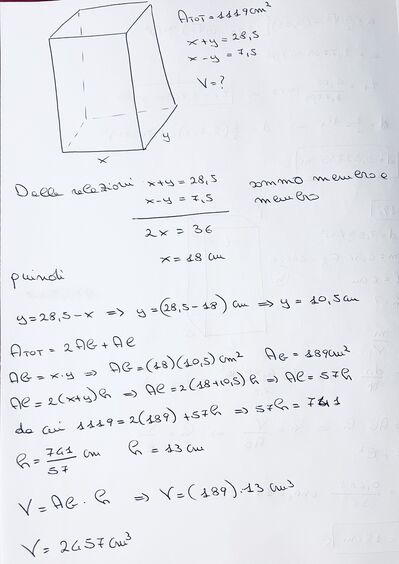 A_TOT = 1119 cm²
x+y = 28,5
x-y = 7,5
V = ?
y
x
Dalle relazioni x+y = 28,5 sommo membro a
x-y = 7,5 membro
2x = 36
x = 18 cm
quindi
y = 28,5 - x ⇒ y = (28,5 - 18) cm ⇒ y = 10,5 cm
A_TOT = 2Ab + Al
Ab = x·y ⇒ Ab = (18)(10,5) cm² Ab = 189 cm²
Al = 2(x+y)h ⇒ Al = 2(18+10,5)h ⇒ Al = 57h
da cui 1119 = 2(189) + 57h ⇒ 57h = 741
h = 741/57 cm h = 13 cm
V = Ab · h ⇒ V = (189)·13 cm³
V = 2457 cm³